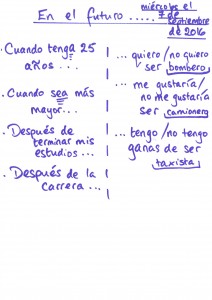 En el futuro .....
miércoles el
7 de
septiembre
de 2016
· Cuando tenga 25
años ...
· Cuando sea más
mayor...
· Después de
terminar mis
estudios ...
· Después de la
carrera ...
... quiero / no quiero
ser bombero
... me gustaría/
no me gustaría
ser camionero
... tengo / no tengo
ganas de ser
taxista